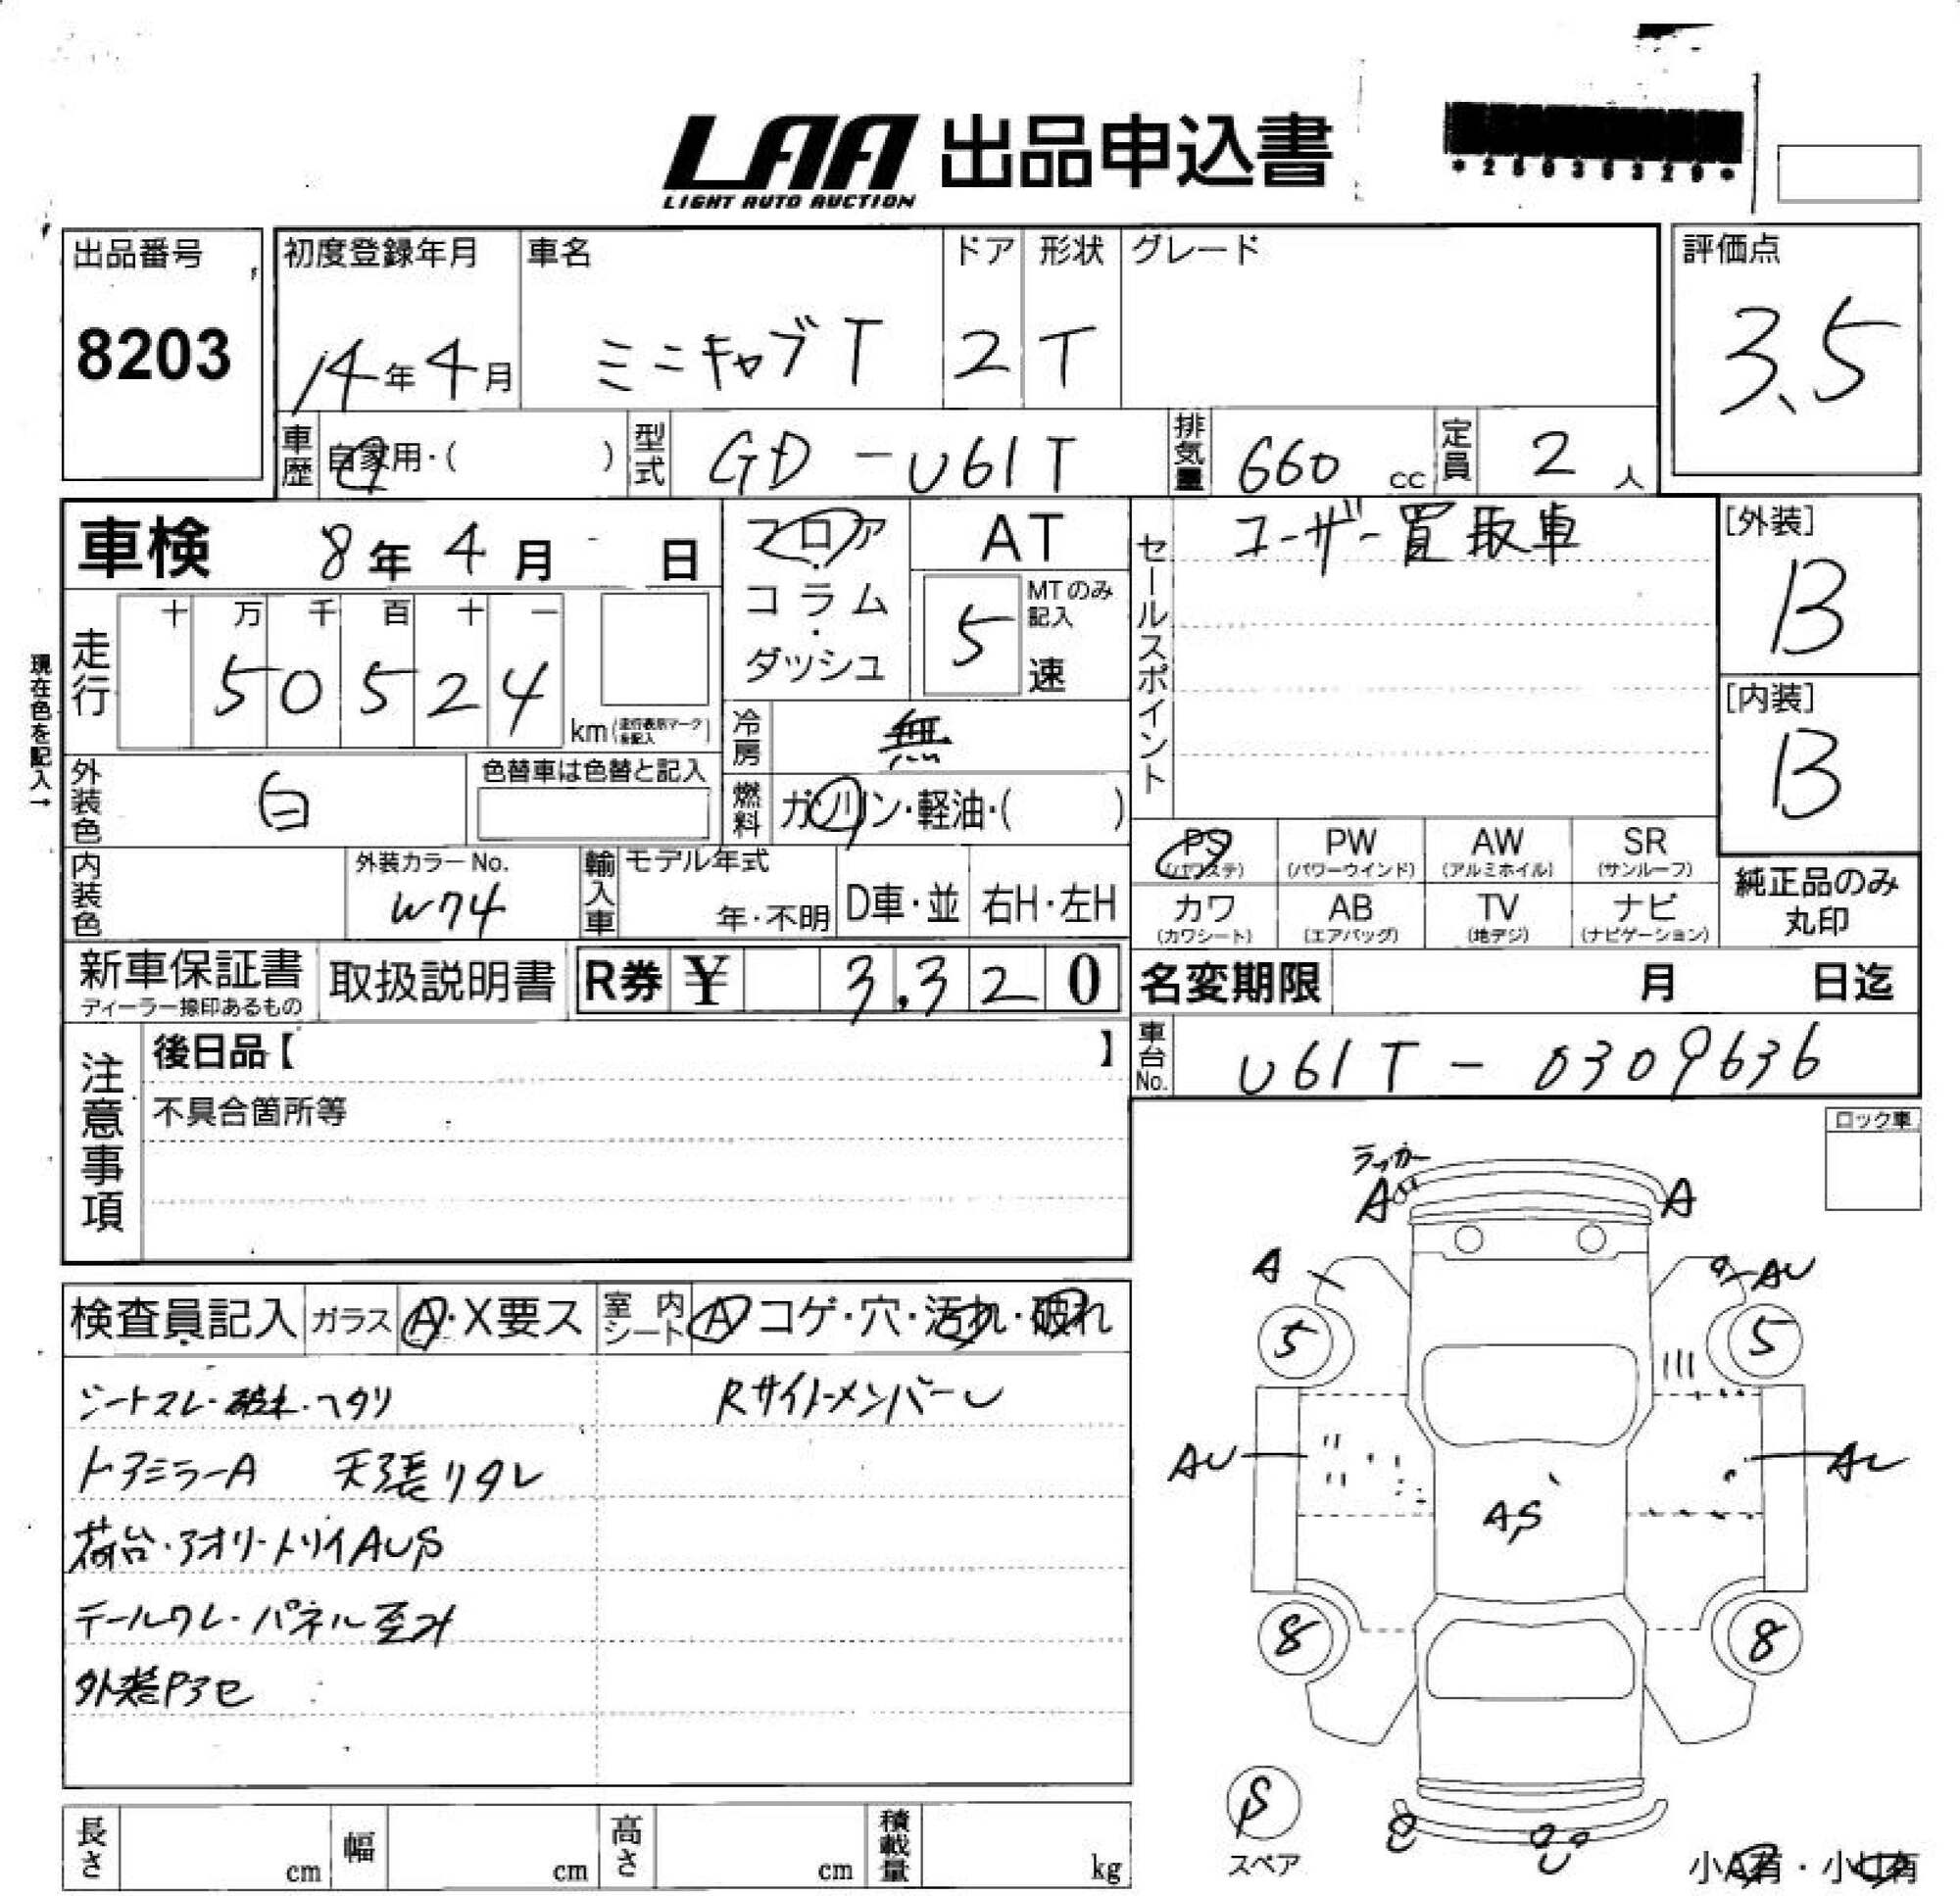 LAA 出品申込書
LIGHT AUTO AUCTION
出品番号
8203
初度登録年月
14年4月
車名
ミニキャブT
ドア
2
形状
T
グレード
評価点
3.5
車歴
自家用・( )
型式
GD-U61T
排気量
660 cc
定員
2 人
車検 8年4月 日
フロア・コラム・ダッシュ
AT
5
MTのみ記入
速
現在色を記入→
走行
十 万 千 百 十 一
5 0 5 2 4
km
冷房
無
燃料
ガソリン・軽油・( )
外装色
白
色替車は色替と記入
内装色
外装カラーNo.
W74
輸入車
モデル年式
年・不明
D車・並
右H・左H
セールスポイント
ユーザー買取車
[外装]
B
[内装]
B
PS
(パワステ)
PW
(パワーウインド)
AW
(アルミホイル)
SR
(サンルーフ)
カワ
(カワシート)
AB
(エアバッグ)
TV
(地デジ)
ナビ
(ナビゲーション)
純正品のみ
丸印
新車保証書
ディーラー捺印あるもの
取扱説明書
R券 ¥ 3,320
名変期限 月 日迄
車台No.
U61T-0309636
注意事項
後日品【 】
不具合箇所等
ロック車
検査員記入
ガラス
A・X要ス
室内シート
A コゲ・穴・汚れ・破れ
シートスレ・破れ・ヘタリ
RサイドメンバーU
ドアミラーA 天張りタレ
荷台・アオリ・トリイAUS
テールワレ・パネル歪み
外装Pアセ
A
A
A
AU
5
5
AU
AU
AS
8
8
S
スペア
小A有・小U有
長さ cm
幅 cm
高さ cm
積載量 kg